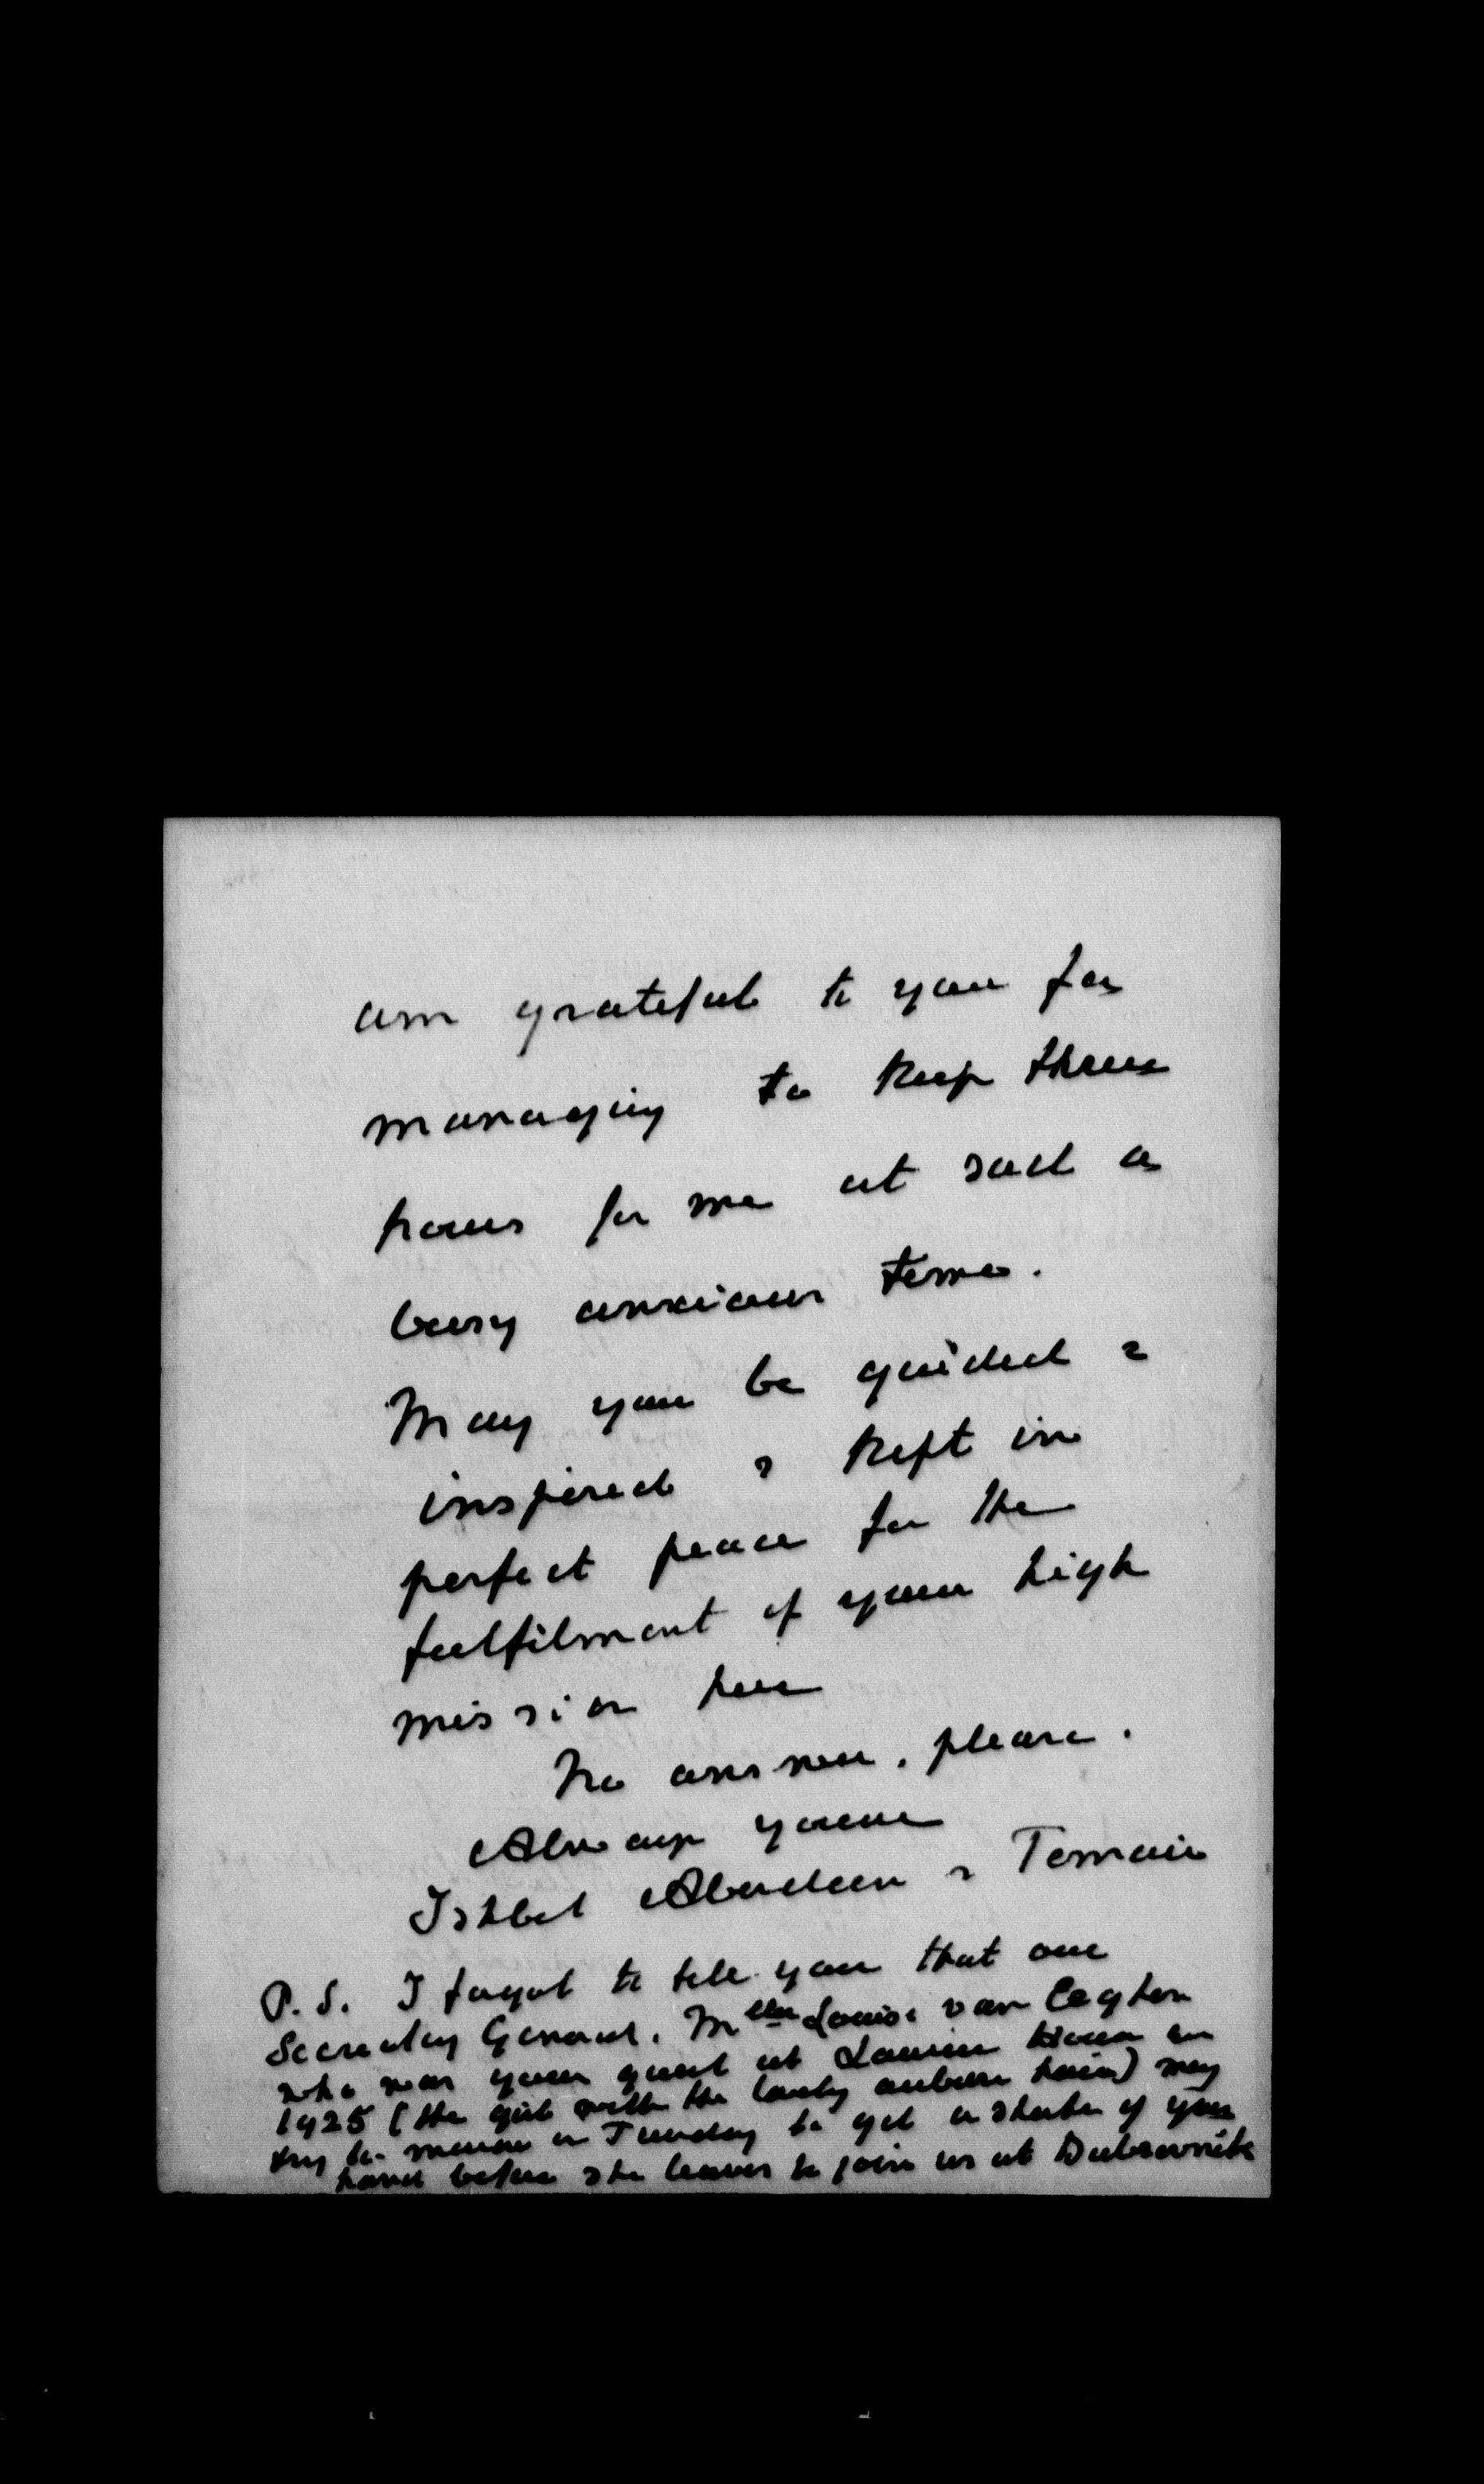 am grateful to you for
managing to keep three
hours for me at such a
busy anxious time.
May you be guided &
inspired & kept in
perfect peace for the
fulfilment of your high
mission here
No answer, please.
Always yours
Ishbel Aberdeen & Temair
P.S. I forgot to tell you that our
Secretary General, Mlle Louise van Eeghen
who was your guest at Laurier House in
1925 (the girl with the lovely auburn hair) may
try to-morrow or Tuesday to get a shake of your
hand before she leaves to join us at Dubrovnik